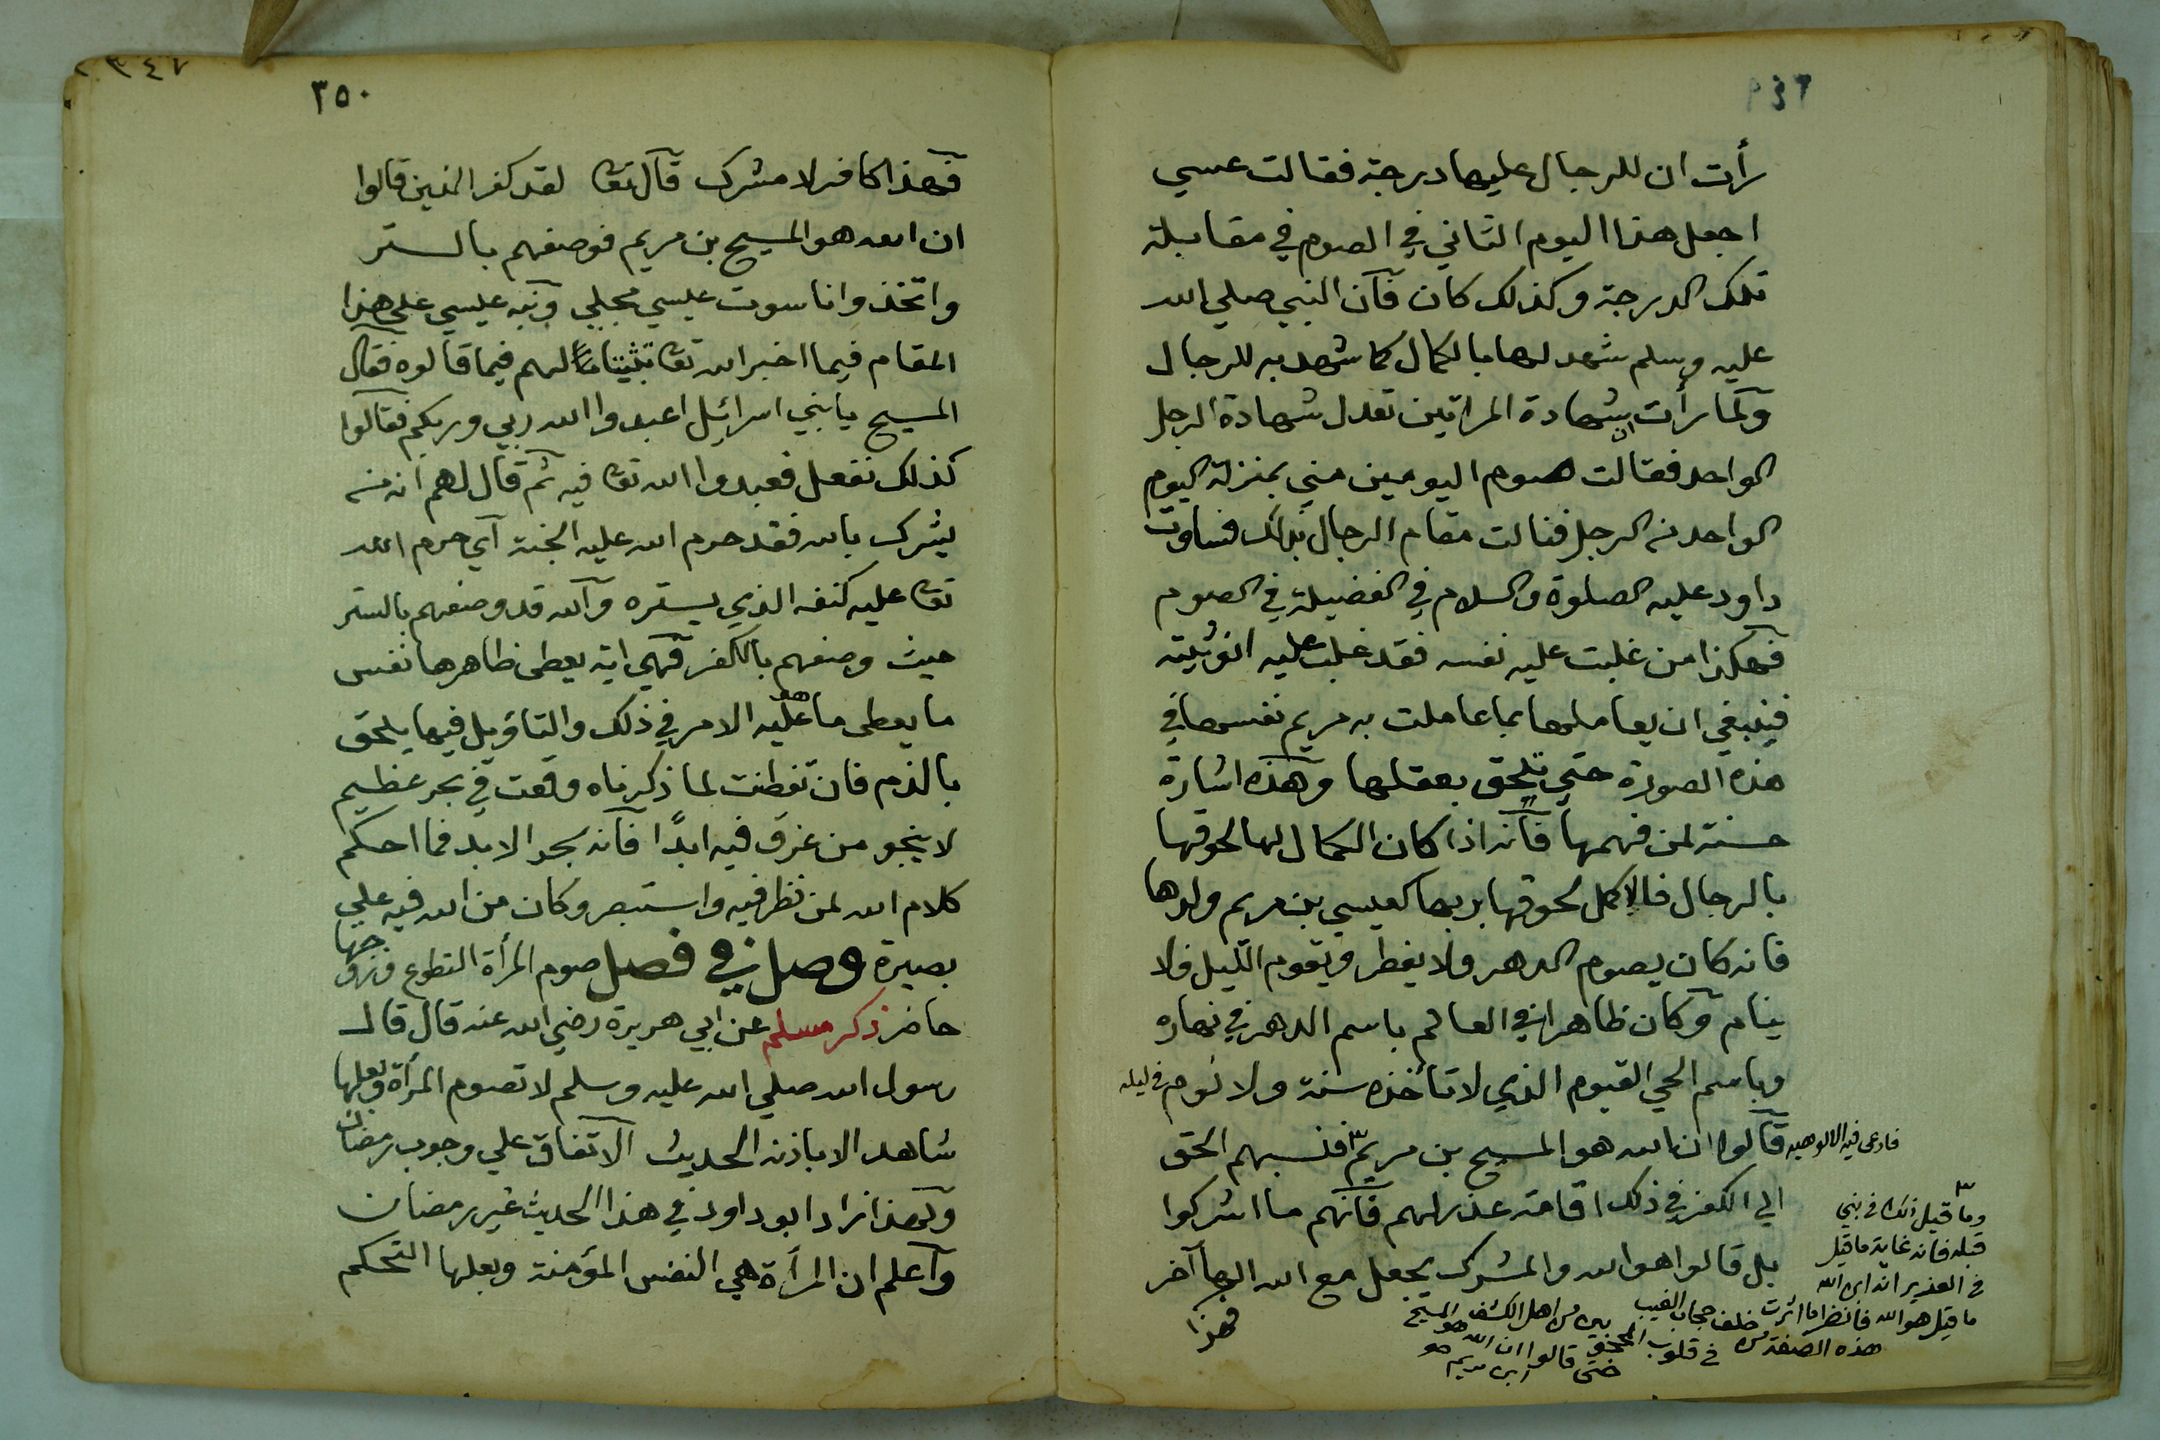 رأت ان للرجال عليها درجة فقالت عسي
اجعل هذا اليوم الثاني في الصوم في مقابلة
تلك الدرجة وكذلك كان فآن النبي صلي الله
عليه وسلم شهد لها بالكمال كما شهد به للرجال
ولما رأت ان شهادة المراتين تعدل شهادة الرجل
الواحد فقالت صوم اليومين مني بمنزلة اليوم
الواحد من الرجل فنالت مقام الرجال بذلك فساوت
داود عليه الصلوة والسلام في الفضيلة في الصوم
فهكذا من غلبت عليه نفسه فقد غلبت عليه انوثيته
فينبغي ان يعاملها بما عاملت به مريم نفسها في
هذه الصورة حتي تلحق بعقلها وهذه اشارة
حسنة لمن فهمها فآنه اذا كان الكمال لها لحوقها
بالرجال فالاكمل لحوقها بربها كعيسي بن مريم ولدها
فانه كان يصوم الدهر ولا يفطر ويقوم الليل ولا
ينام وكان ظاهرا في العالم باسم الدهر في نهاره
وباسم الحي القيوم الذي لا تأخذه سنة ولا نوم في ليله
فادعى فيه الالوهيه
قالوا ان الله هو المسيح بن مريم فنسبهم الحق
الي الكفر في ذلك اقامة عذر لهم فآنهم ما اشركوا
بل قالوا هو الله والمشرك يجعل مع الله الها آخر
وما قيل ذلك في نبي
قبله فانه غاية ما قيل
في العزير انه ابن الله
ما قيل هو الله فانظر ما اثرت
هذه الصفة من
خلف حجاب الغيب
في قلوب المحجوبين من اهل الكشف
حتى قالوا ان الله هو المسيح
ابن مريم
فهذا
٣٥٠
فهذا كافر لا مشرك قال تعا لقد كفر الذين قالوا
ان الله هو المسيح بن مريم فوصفهم بالستر
واتخذوا ناسوت عيسي مجلي ونبه عيسي علي هذا
المقام فيما اخبر الله تعا تثبيتا لهم فيما قالوه فقال
المسيح يا بني اسرائيل اعبدوا الله ربي وربكم فقالوا
كذلك نفعل فعبدوا الله تعا فيه ثم قال لهم انه من
يشرك بالله فقد حرم الله عليه الجنة آي حرم الله
تعا عليه كنفه الذي يستره والله قد وصفهم بالستر
حيث وصفهم بالكفر فهي اية يعطى ظاهرها نفس
ما يعطى ما هو عليه الامر في ذلك والتاويل فيها يلحق
بالذم فان تفطنت لما ذكرناه وقعت في بحر عظيم
لا ينجو من غرق فيه ابدًا فآنه بحر الابد فما احكم
كلام الله لمن نظر فيه واستبصر وكان من الله فيه علي
بصيرة وصل في فصل صوم المرأة التطوع وزوجها
حاضر ذكر مسلم عن ابي هريرة رضي الله عنه قال قال
رسول الله صلي الله عليه وسلم لا تصوم المرأة وبعلها
شاهد الا باذنه الحديث الاتفاق علي وجوب رمضان
ولهذا زاد ابو داود في هذا الحديث غير رمضان
وآعلم ان المرأة هي النفس المؤمنة وبعلها التحكم